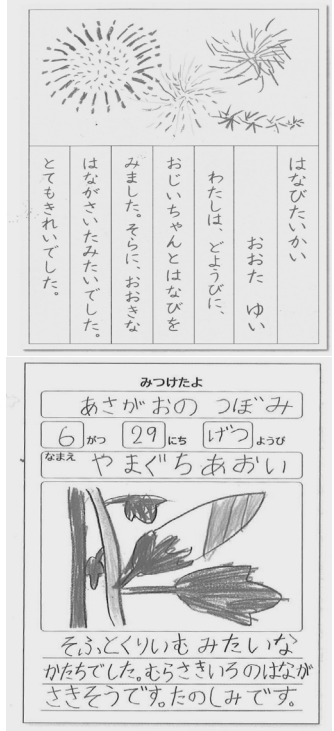 はなびたいかい
おおた ゆい
わたしは、どようびに、
おじいちゃんとはなびを
みました。そらに、おおきな
はながさいたみたいでした。
とてもきれいでした。
みつけたよ
あさがおの つぼみ
6 がつ 29 にち げつ ようび
なまえ やまぐちあおい
そふとくりいむ みたいな
かたちでした。むらさきいろのはなが
さきそうです。たのしみです。